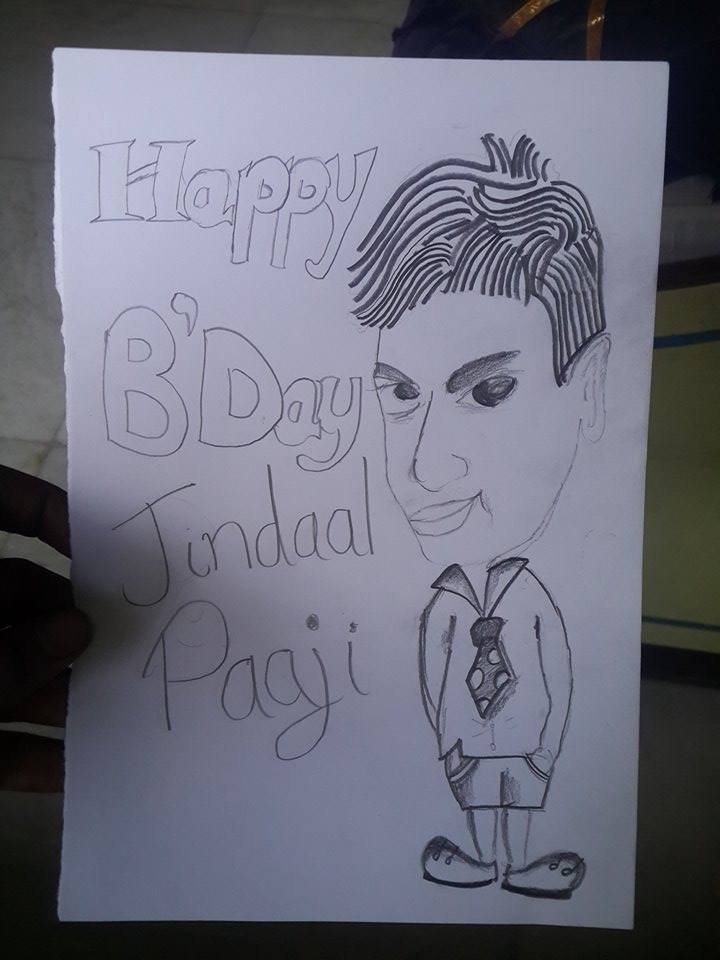 Happy
B'Day
Jindaal
Paaji